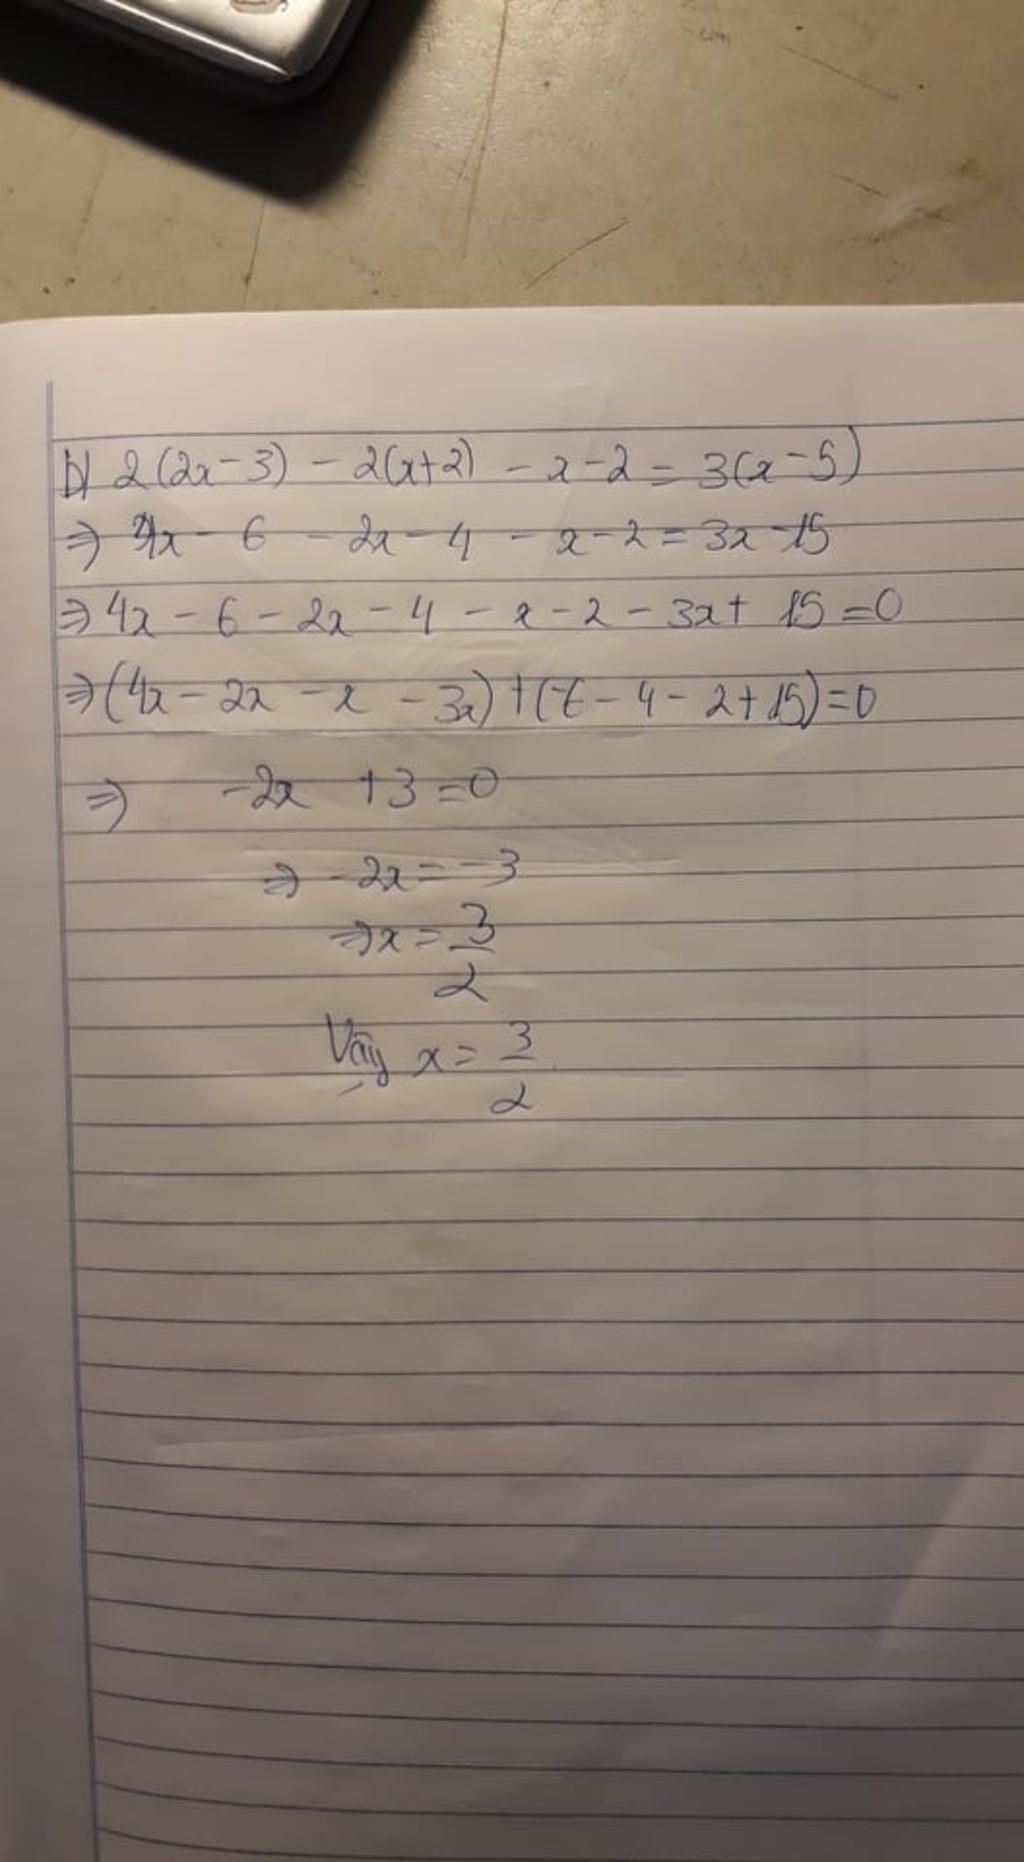 b) 2(2x-3) - 2(x+2) - x-2 = 3(x-5)
=> 4x - 6 - 2x - 4 - x-2 = 3x-15
=> 4x - 6 - 2x - 4 - x - 2 - 3x + 15 = 0
=> (4x - 2x - x - 3x) + (-6 - 4 - 2 + 15) = 0
=> -2x + 3 = 0
=> -2x = -3
=> x = 3/2
Vậy x = 3/2